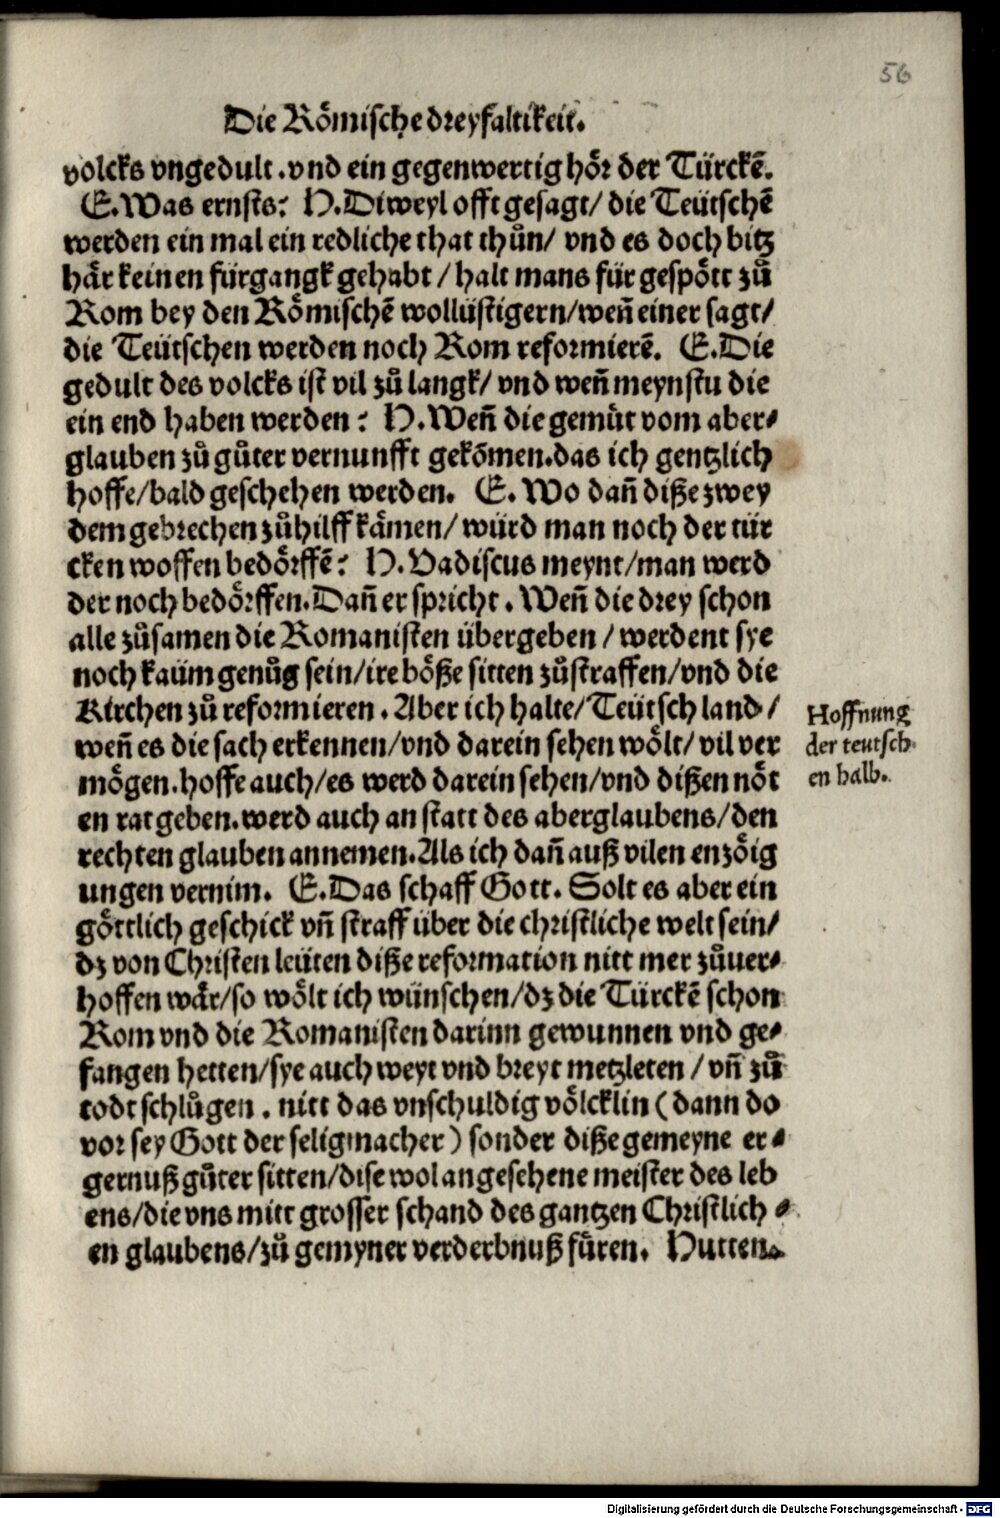 56
Die Roͤmische dreyfaltikeit.
volcks vngedult .vnd ein gegenwertig hoͤr der Türckē.
E. Was ernsts? H. Diweyl offt gesagt/ die Teütschē
werden ein mal ein redliche that thůn/ vnd es doch bitz
haͤr keinen fürgangk gehabt / halt mans für gespoͤtt zů
Rom bey den Roͤmischē wollüstigern/weñ einer sagt/
die Teütschen werden noch Rom reformierē. E. Die
gedult des volcks ist vil zů langk/ vnd weñ meynstu die
ein end haben werden? H. Weñ die gemüt vom aber⸗
glauben zů gůter vernunfft gekōmen.das ich gentzlich
hoffe/bald geschehen werden. E. Wo dañ diße zwey
dem gebrechen zů hilff kaͤmen/ würd man noch der tür
cken woffen bedoͤrffē? H. Vadiscus meynt/man werd
der noch bedoͤrffen. Dañ er spricht . Weñ die drey schon
alle zůsamen die Romanisten übergeben / werdent sye
noch kaüm genůg sein/ire boͤße sitten zůstraffen/vnd die
Kirchen zů reformieren . Aber ich halte/ Teütsch land/
weñ es die sach erkennen/vnd darein sehen woͤlt/ vil ver
moͤgen.hoffe auch/es werd darein sehen/vnd dißen noͤt
en rat geben.werd auch an statt des aberglaubens/den
rechten glauben annemen. Als ich dañ auß vilen enzoͤig
ungen vernim. E. Das schaff Gott. Solt es aber ein
goͤttlich geschick vñ straff über die christliche welt sein/
dz von Christen leüten diße reformation nitt mer zůuer⸗
hoffen waͤr/so woͤlt ich wünschen/dz die Türckē schon
Rom vnd die Romanisten darinn gewunnen vnd ge⸗
fangen hetten/sye auch weyt vnd breyt metzleten / vñ zů
todt schlůgen . nitt das vnschuldig voͤlcklin (dann do
vor sey Gott der seligmacher) sonder diße gemeyne er⸗
gernuß gůter sitten/dise wolangesehene meister des leb
ens/die vns mitt grosser schand des gantzen Christlich⸗
en glaubens/zů gemyner verderbnuß füren. Hutten.
Hoffnung
der teutsch
en halb.
Digitalisierung gefördert durch die Deutsche Forschungsgemeinschaft - DFG